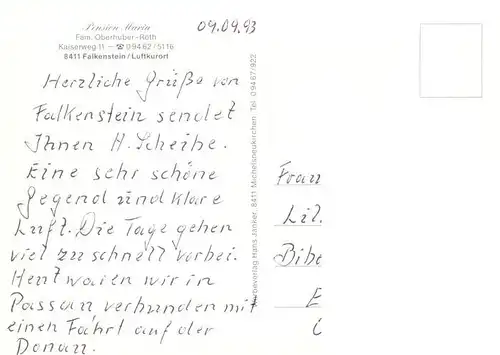 Pension Maria
Fam. Oberhuber-Roth
Kaiserweg 11 – ☎ 0 94 62 / 51 16
8411 Falkenstein / Luftkurort
09.09.93
Herzliche Grüße von
Falkenstein sendet
Ihnen H. Scheibe.
Eine sehr schöne
Gegend und klare
Luft. Die Tage gehen
viel zu schnell vorbei.
Heut waren wir in
Passau verbunden mit
einen Fahrt auf der
Donau.
Werbeverlag Hans Janker, 8411 Michelsneukirchen Tel. 0 94 67/922
Frau
Lil
Bibe
E